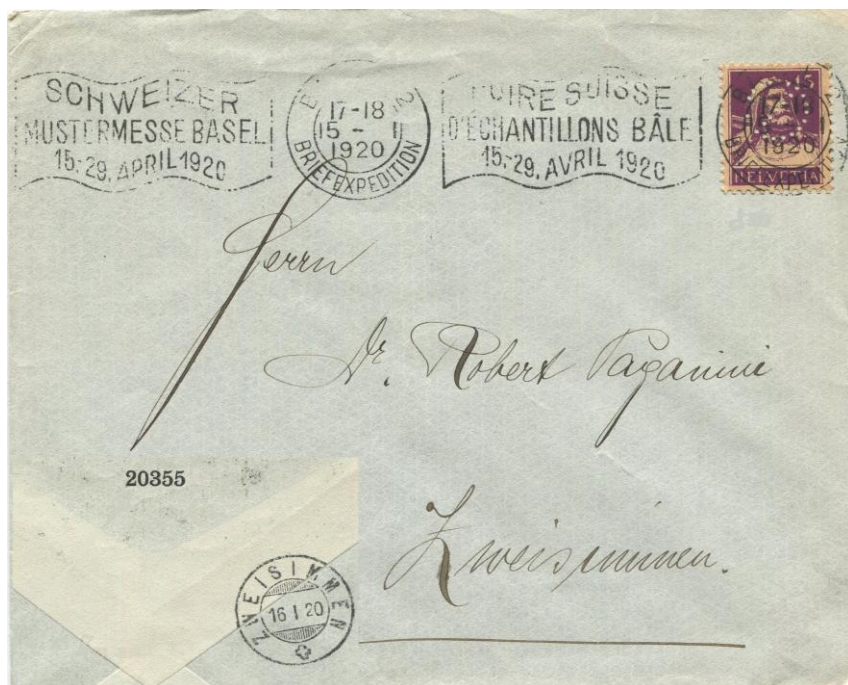 SCHWEIZER
MUSTERMESSE BASEL
15.-29. APRIL 1920
17-18
15 - I
1920
BRIEFEXPEDITION
FOIRE SUISSE
D'ÉCHANTILLONS BÂLE
15.-29. AVRIL 1920
15
17-18
1920
HELVETIA
Herrn
Dr. Robert Paganini
Zweisimmen.
20355
ZWEISIMMEN
16 I 20